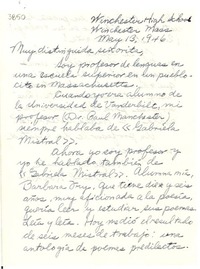 3850
Winchester High School
Winchester Mass
May 13, 1946
Muy distinguida señorita,
Soy profesor de lenguas en
una escuela superior en un pueblo-
cito en Massachusetts.
Cuando yo era alumno de
la Universidad de Vanderbilt, mi
profesor (Dr. Paul Manchester)
siempre hablaba de «Gabriela
Mistral».
Ahora yo soy profesor y
yo he hablado también de
«Gabriela Mistral». Alumna mía,
Barbara Fry, que tiene diez y seis
años, muy aficionada a la poesía,
quería leer y estudiar sus poemas
Leía y leía. Hoy me dió el resultado
de seis meses de trabajo: una
antología de poemas predilectos.